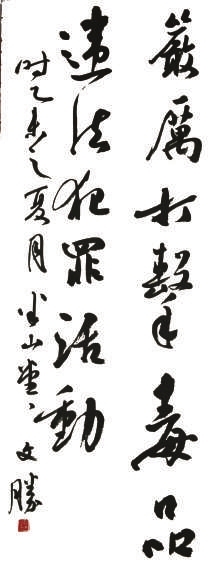 嚴厲打擊毒品
違法犯罪活動
時乙未之夏月半山堂文勝